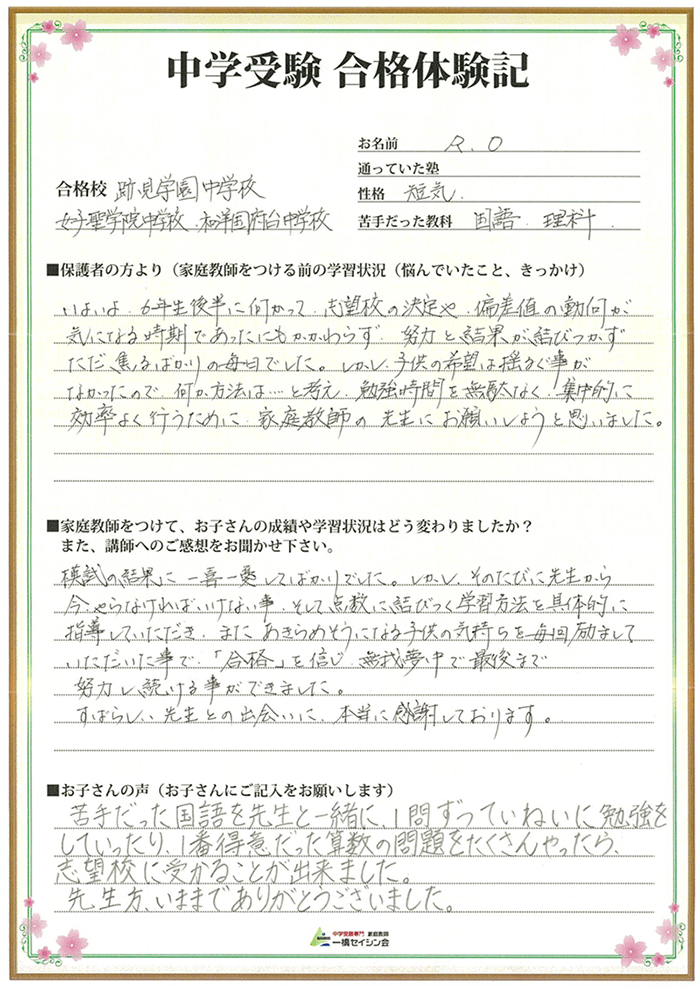 中学受験 合格体験記
お名前 R.O
通っていた塾
合格校 跡見学園中学校
性格 短気.
女子聖学院中学校.和洋国府台中学校
苦手だった教科 国語.理科.
■保護者の方より（家庭教師をつける前の学習状況（悩んでいたこと、きっかけ）
いよいよ.6年生後半に向かって.志望校の決定や.偏差値の動向が
気になる時期であったにもかかわらず.努力と結果が結びつかず
ただ焦るばかりの毎日でした。しかし.子供の希望は揺るぐ事が
なかったので.何か方法は…と考え.勉強時間を無駄なく.集中的に
効率よく行うために.家庭教師の先生にお願いしようと思いました。
■家庭教師をつけて、お子さんの成績や学習状況はどう変わりましたか？
また、講師へのご感想をお聞かせ下さい。
模試の結果に一喜一憂してばかりでした。しかし.そのたびに先生から
今.やらなければいけない事.そして点数に結びつく学習方法を具体的に
指導していただき.またあきらめそうになる子供の気持ちを毎回励まして
いただいた事で.「合格」を信じ.無我夢中で最後まで
努力し続ける事ができました。
すばらしい先生との出会いに.本当に感謝しております。
■お子さんの声（お子さんにご記入をお願いします）
苦手だった国語を先生と一緒に、1問ずつていねいに勉強を
していったり、1番得意だった算数の問題をたくさんやったら、
志望校に受かることが出来ました。
先生方、いままでありがとうございました。
中学受験専門 家庭教師
一橋セイシン会